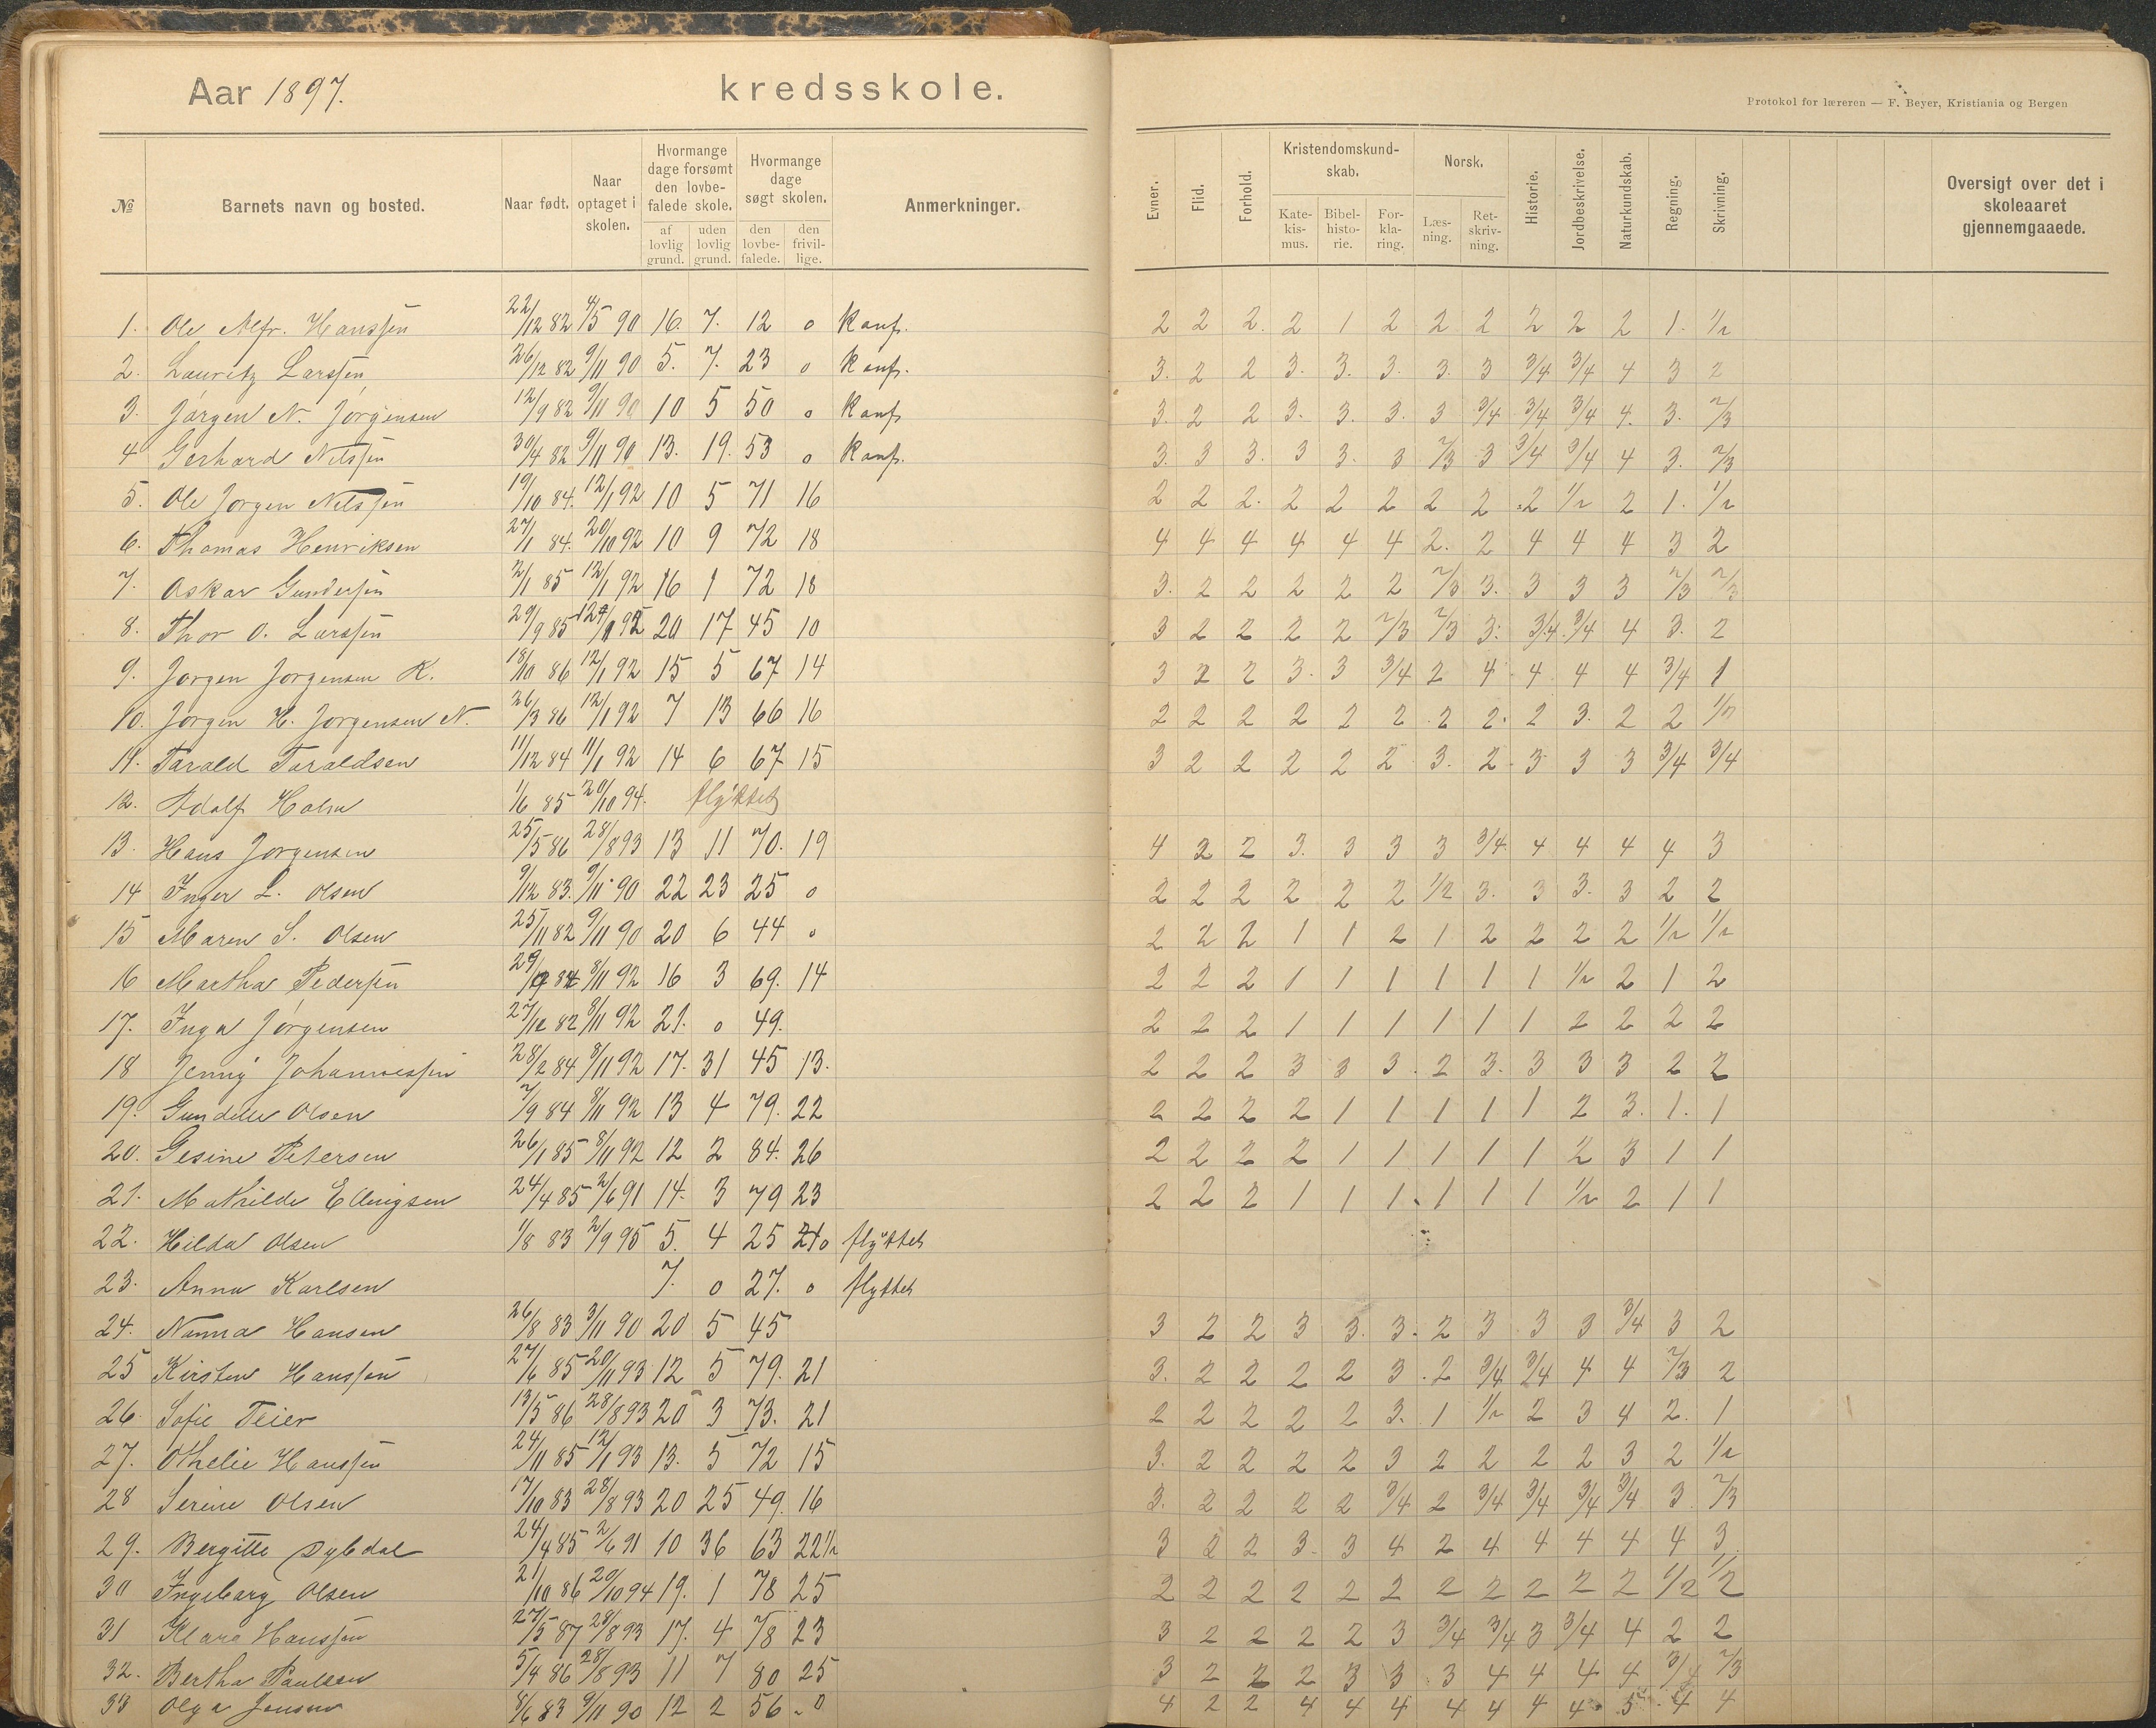 Aar 1897. kredsskole.
Protokol for læreren — F. Beyer, Kristiania og Bergen
№ Barnets navn og bosted. Naar født. Naar optaget i skolen. Hvormange dage forsømt den lovbefalede skole. af lovlig grund. uden lovlig grund. Hvormange dage søgt skolen. den lovbefalede. den frivillige. Anmerkninger. Evner. Flid. Forhold. Kristendomskundskab. Katekismus. Bibelhistorie. Forklaring. Norsk. Læsning. Retskrivning. Historie. Jordbeskrivelse. Naturkundskab. Regning. Skrivning. Oversigt over det i skoleaaret gjennemgaaede.
1. Ole Alfr. Hanssen 22/12 82 4/5 90 16. 7. 12 0 Konf. 2 2 2. 2 1 2 2 2 2 2 2 1. 1/2
2. Lauritz Larssen 26/12 82 9/11 90 5. 7. 23 0 Konf. 3. 2 2 3. 3. 3. 3. 3 3/4 3/4 4 3 2
3. Jørgen N. Jørgensen 12/9 82 9/11 90 10 5 50 0 Konf 3. 2 2 3. 3. 3. 3 3/4 3/4 3/4 4. 3. 2/3
4 Gerhard Nilssen 30/4 82 9/11 90 13. 19. 53 0 Konf. 3. 3 3. 3 3. 3 2/3 3 3/4 3/4 4 3. 2/3
5. Ole Jørgen Nilssen 19/10 84. 12/1 92 10 5 71 16 2 2 2. 2 2 2 2 2 2 1/2 2 1. 1/2
6. Thomas Henriksen 27/1 84. 20/10 92 10 9 72 18 4 4 4 4 4 4 2. 2 4 4 4 3 2
7. Oskar Gundersen 2/1 85 12/1 92 16 1 72 18 3. 2 2 2 2 2 2/3 3. 3 3 3 2/3 2/3
8. Thor O. Larssen 29/9 85 20 17 45 10 3 2 2 2 2 2/3 2/3 3. 3/4 3/4 4 3. 2
9. Jørgen Jørgensen K. 18/10 86 12/1 92 15 5 67 14 3 2 2 3. 3 3/4 2 4 4 4 4 3/4 1
10. Jørgen H. Jørgensen N. 26/3 86 12/1 92 7 13 66 16 2 2 2 2 2 2 2 2. 2 3. 2 2 1/2
11. Tarald Taraldsen 11/12 84 11/1 92 14 6 67 15 3 2 2 2 2 2 3. 2 3 3 3 3/4 3/4
12. Adolf Holm 1/6 85 20/10 94. flyttet
13. Hans Jørgensen 25/5 86 28/8 93 13 11 70. 19 4 2 2 3. 3 3 3 3/4 4 4 4 4 3
14 Inger L. Olsen 9/12 83. 9/11 90 22 23 25 0 2 2 2 2 2 2 1/2 3. 3 3. 3 2 2
15 Maren S. Olsen 25/11 82 9/11 90 20 6 44 0 2 2 2 1 1 2 1 2 2 2 2 1/2 1/2
16 Martha Pedersen 8/11 92 16 3 69. 14 2 2 2 1 1 1 1 1 1 1/2 2 1 2
17. Inga Jørgensen 27/12 82 8/11 92 21. 0 49. 2 2 2 1 1 1 1 1 1 2 2 2 2
18 Jenny Johannessen 28/2 84 8/11 92 17. 31 45 13. 2 2 2 3 3 3. 2 3. 3 3 3 2 2
19. Gundelle Olsen 2/9 84 8/11 92 13 4 79. 22 2 2 2 2 1 1 1 1 1 2 3. 1. 1
20. Gesine Petersen 26/1 85 8/11 92 12 2 84. 26 2 2 2 2 1 1 1 1 1 2 3 1 1
21. Mathilde Ellingsen 24/4 85 2/6 91 14. 3 79 23 2 2 2 1 1 1 1 1 1 1/2 2 1 1
22. Hilda Olsen 1/8 83 2/9 95 5. 4 25 0 flyttet
23. Anna Karlsen 7. 0 27. 0 flyttet
24. Nanna Hansen 26/8 83 3/11 90 20 5 45 3 2 2 3 3. 3. 2 3 3 3 3/4 3 2
25 Kirsten Hanssen 27/6 85 20/11 93 12 5 79. 21 3. 2 2 2 2 3 2 3/4 3/4 4 4 2/3 2
26. Sofie Teier 13/5 86 28/8 93 20 3 73. 21 2 2 2 2 2 3. 1 1/2 2 3 4 2. 1
27. Othelie Hanssen 24/11 85 12/1 93 13. 5 72 15 3. 2 2 2 2 3 2 2 2 2 3 2 1/2
28 Serine Olsen 17/10 83 28/8 93 20 25 49. 16 3. 2 2 2 2 3/4 2 3/4 3/4 3/4 3/4 3 2/3
29. Bergitte Dybdal 24/4 85 2/6 91 10 36 63 22 1/2 3 2 2 3. 3 4 2 4 4 4 4 4 3.
30 Ingeborg Olsen 21/10 86 20/10 94 19. 1 78 25 2 2 2 2 2 2 2 2 2 2 2 1/2 1/2
31 Klara Hanssen 27/5 87 28/8 93 17. 4 78 23 3 2 2 2 2 3 3/4 3/4 3 3/4 4 2 2
32. Bertha Paulsen 5/4 86 28/8 93 11 7 80 25 3 2 2 2 3 3 3 4 4 4 4 3/4 2/3
33 Olga Jensen 8/6 83 9/11 90 12 2 56 0 4 2 2 4 4 4 4 4 4 4 5 4 4